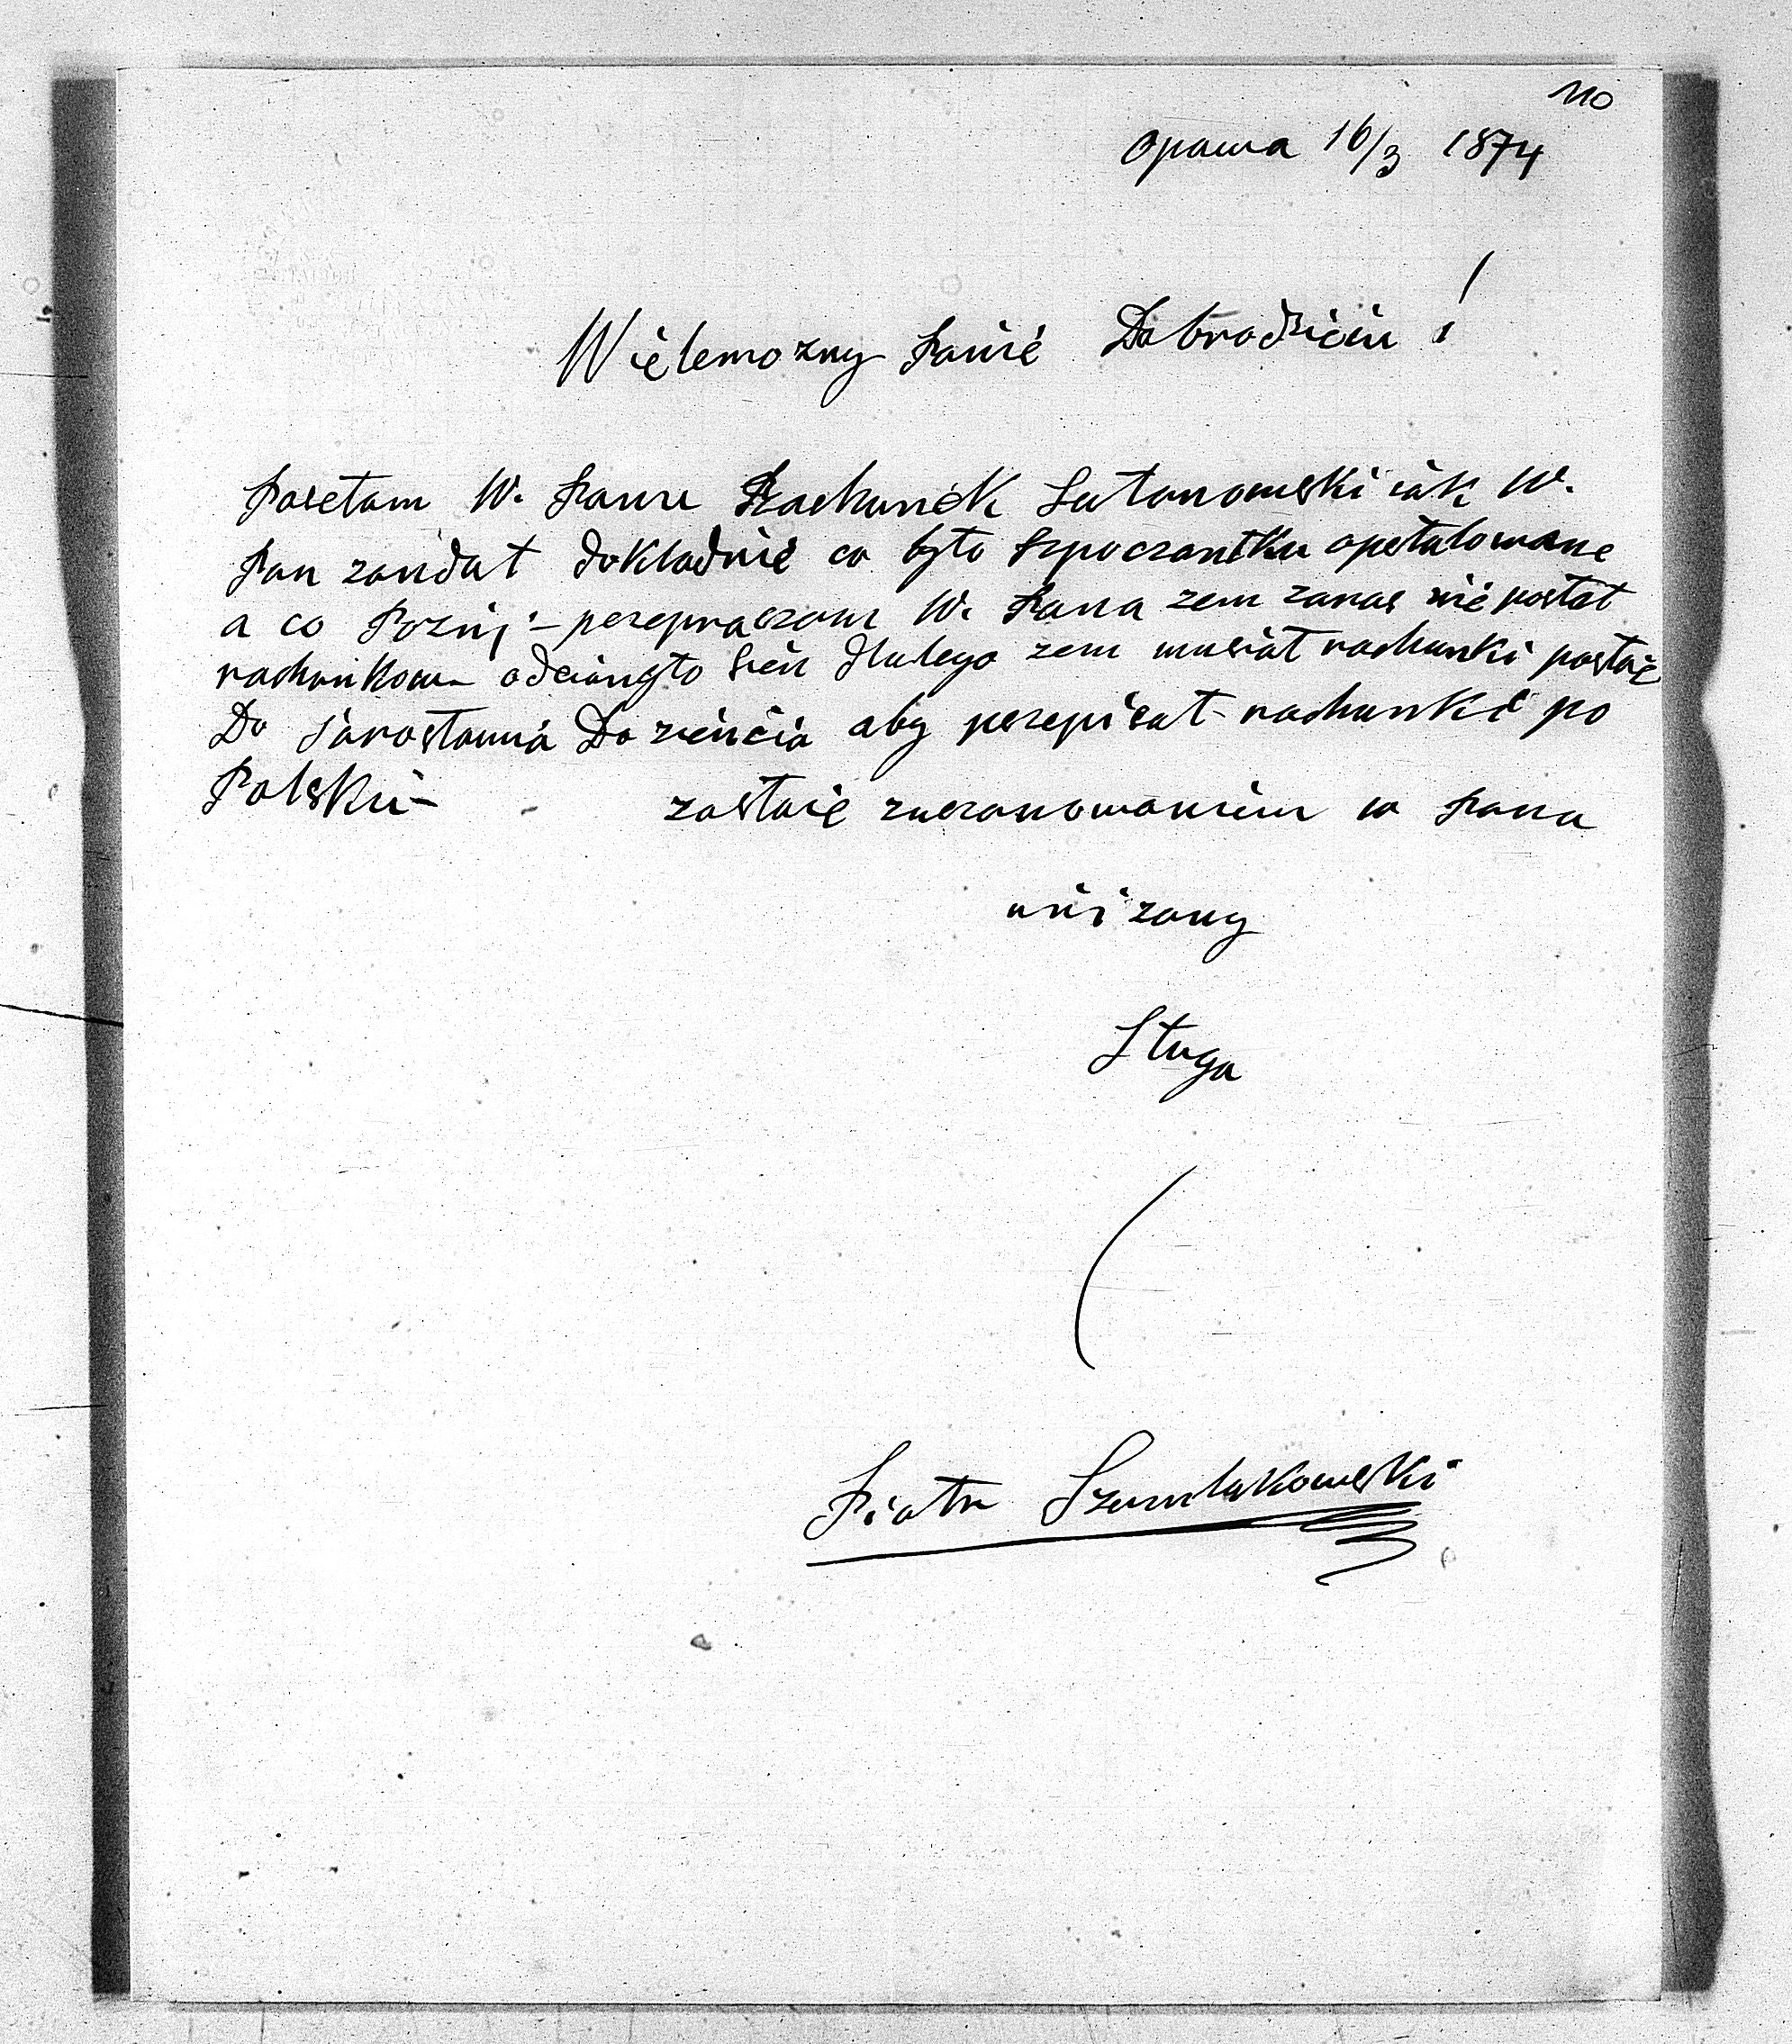 110
Opawa 16/3 1874
Wielemozny Panie Dobrodzieiu!
Posełam W. Panu Rachunek Lutanowski iak W.
Pan zandał dokladnie co było szpoczantku opstalowane
a co Pozni;- perepraczam W. Pana zem zaras nie posłał
rachunkow- odciongło sień dlutego zem musiał rachunki posłać
Do Jarosławia Do zieńcia aby perepisał rachunki po
Polsku-
zostaie zuszanowaniem W Pana
uniżony
Sługa
Piotr Szumlakowski